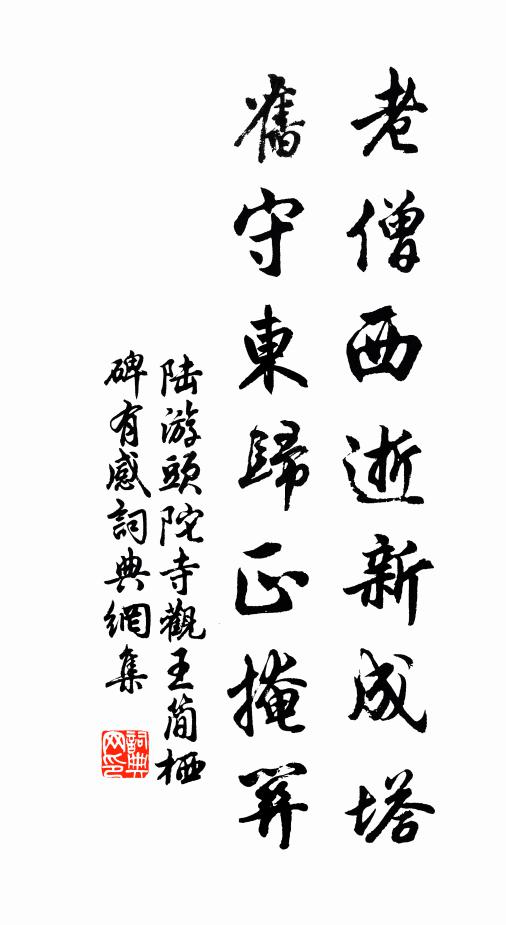 老僧西逝新成塔
舊守東歸正掩關
陸游頭陀寺觀王簡栖
碑有感詞典網集
詞典网印